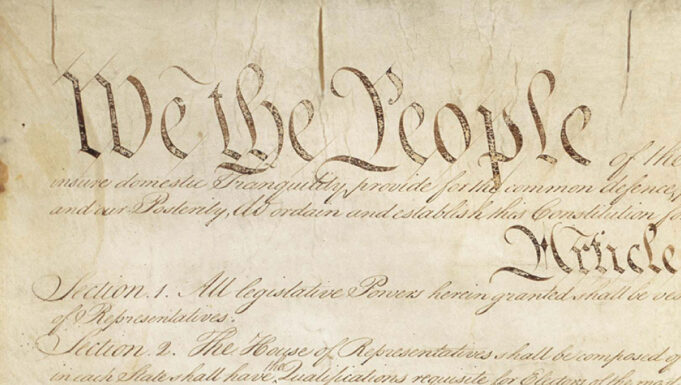 We the People of the
insure domestic Tranquility, provide for the common defence,
and our Posterity, do ordain and establish this Constitution fo
Article
Section. 1. All legislative Powers herein granted shall be ves
of Representatives.
Section. 2. The House of Representatives shall be composed of
in each State shall have the Qualifications requisite for Electors of the